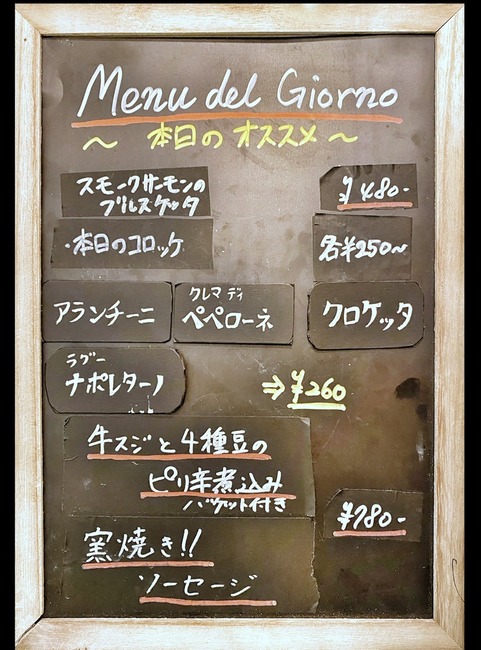 Menu del Giorno
～ 本日のオススメ ～
スモークサーモンの
ブルスケッタ
¥480-
・本日のコロッケ
各¥250～
アランチーニ
クレマ ディ
ペペローネ
クロケッタ
ラグー
ナポレターノ
⇒ ¥260
牛スジと4種豆の
ピリ辛煮込み
バケット付き
¥780-
窯焼き!!
ソーセージ